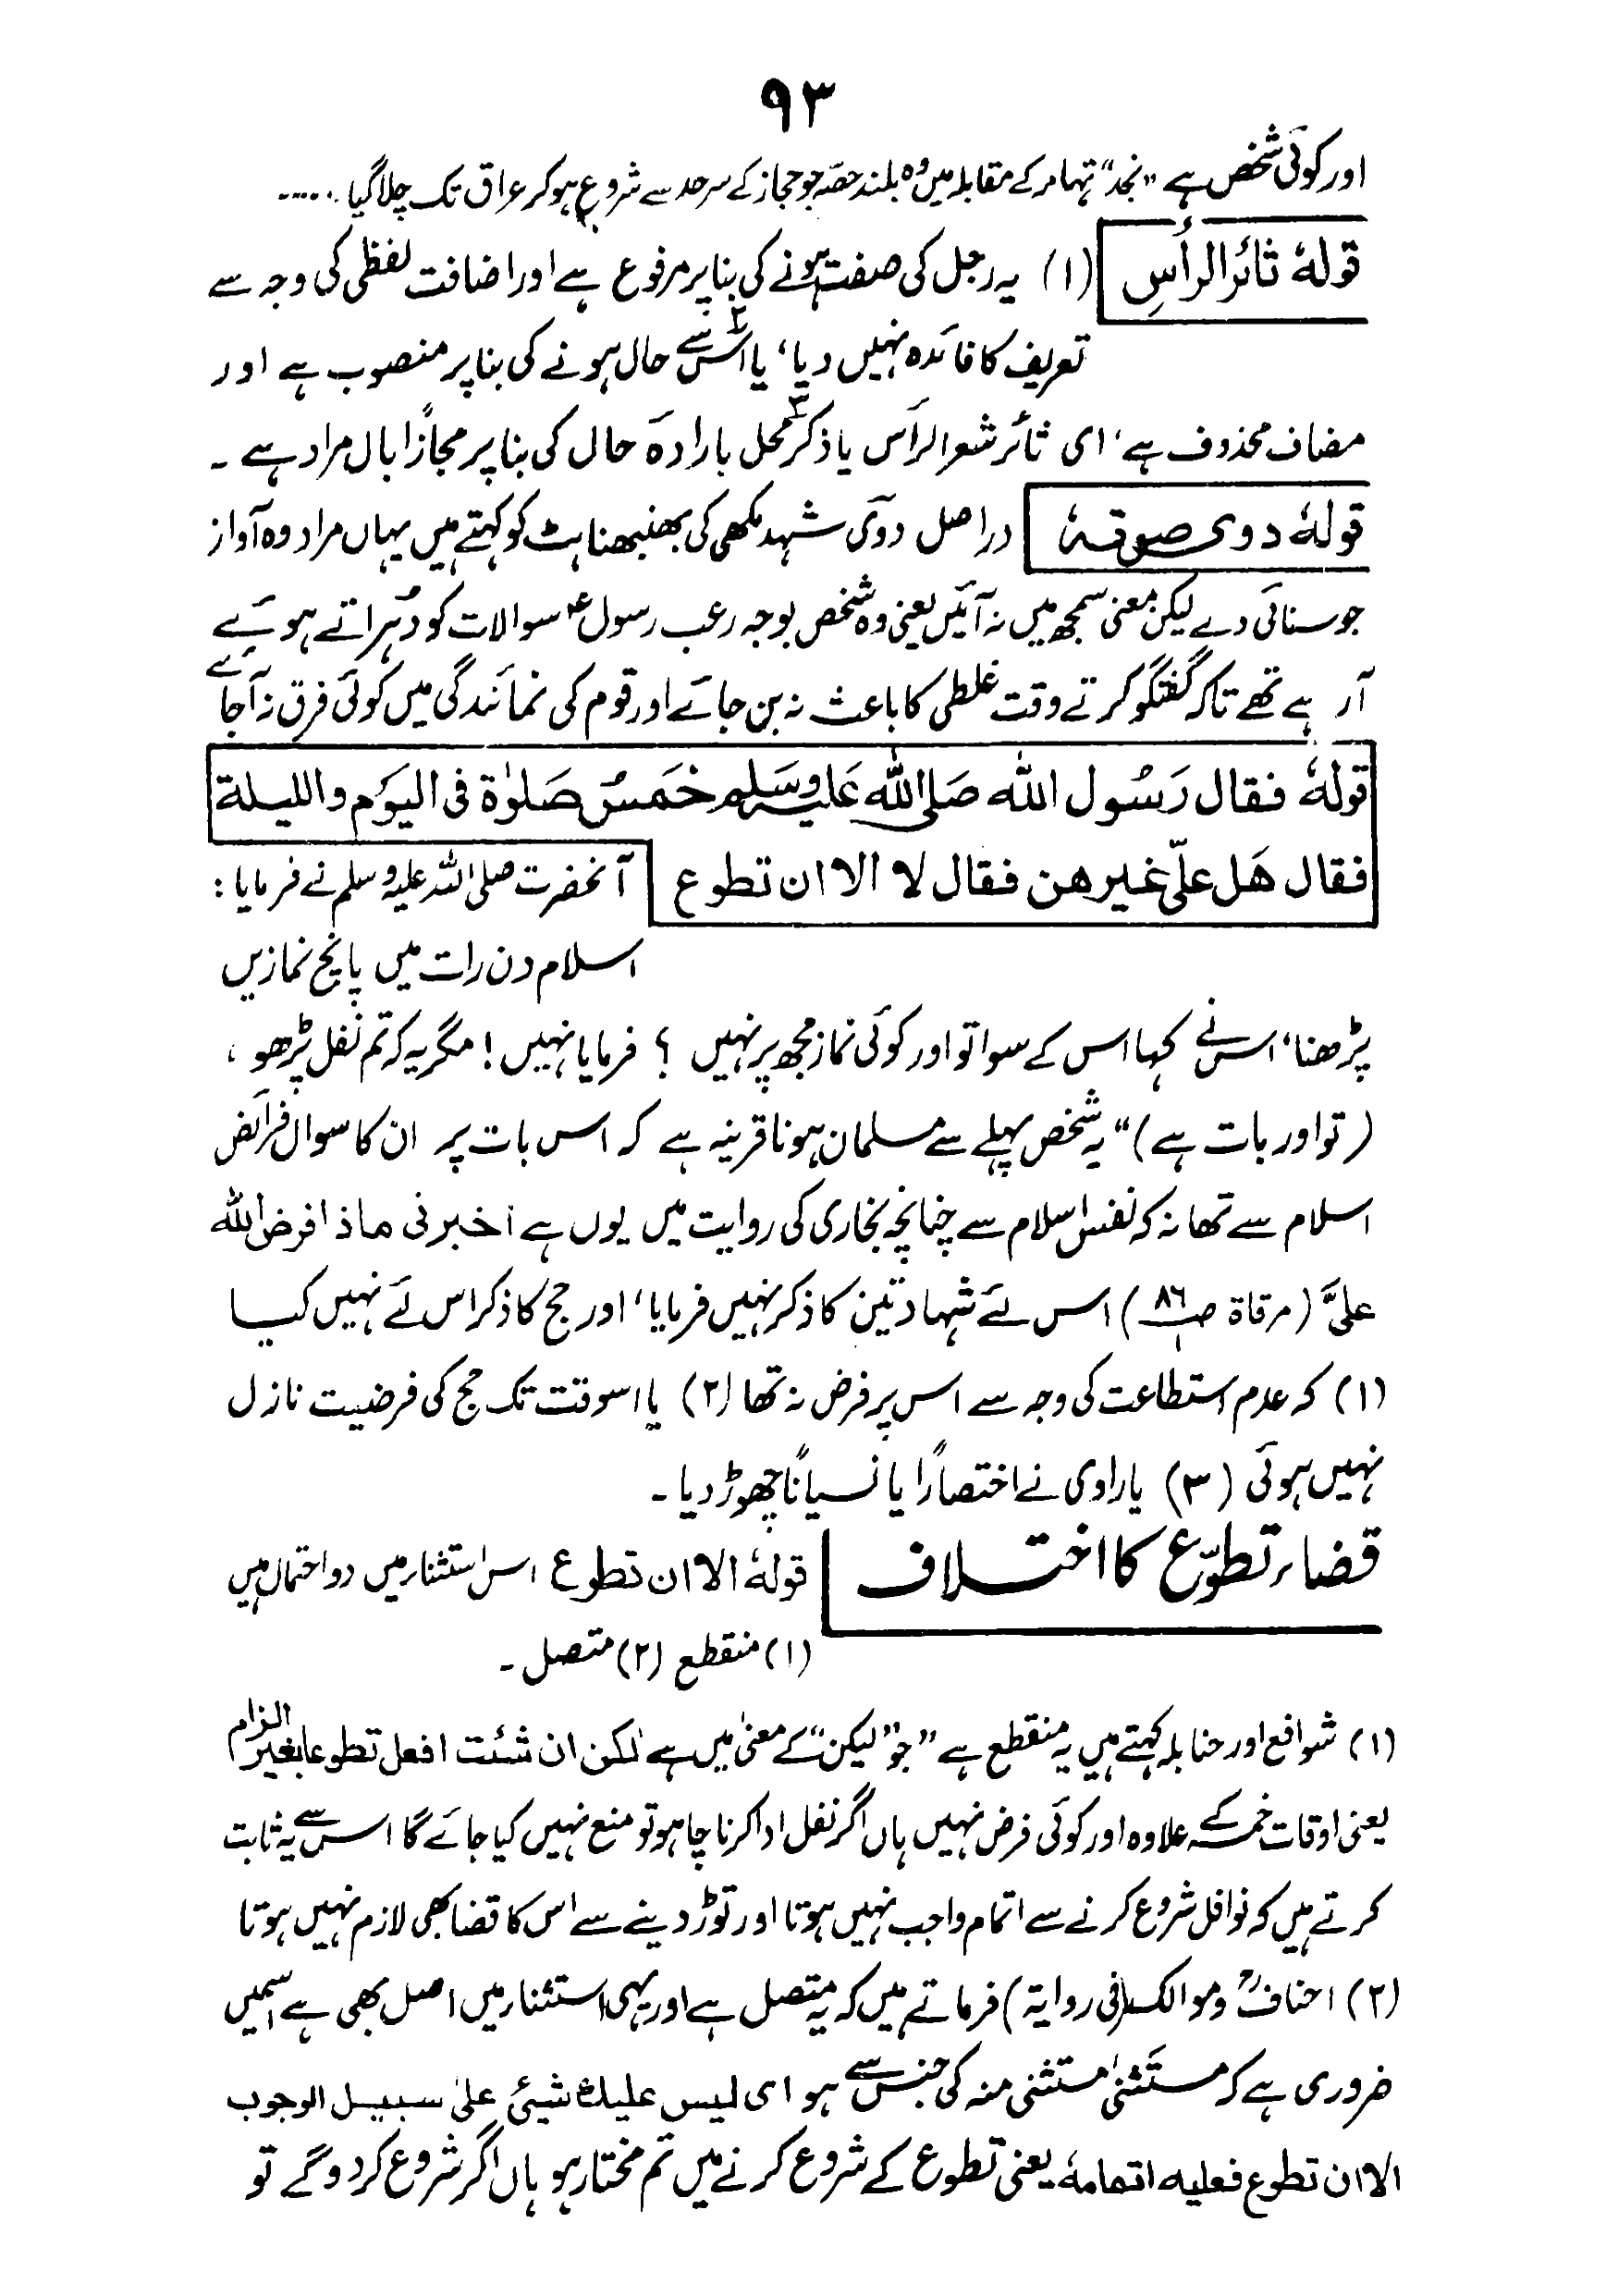 ۹۳
اور کوئی شخص ہے "نجد" تہامہ کے مقابلہ میں وہ بلند حصہ جو حجاز کے سرحد سے شروع ہوکر عراق تک چلا گیا .....
قولہٗ ثائر الرأسِ (۱) یہ رجل کی صفت ہونے کی بنا پر مرفوع ہے اور اضافت لفظی کی وجہ سے
تعریف کا فائدہ نہیں دیا، یا اس سے حال ہونے کی بنا پر منصوب ہے اور
مضاف محذوف ہے، ای ثائر شعر الرأس یا ذکر محل بارادہ حال کی بنا پر مجازًا بال مراد ہے ۔
قولہٗ دوی صوتہٗ دراصل دوی شہد مکھی کی بھنبھناہٹ کو کہتے ہیں یہاں مراد وہ آواز
جو سنائی دے لیکن معنی سمجھ میں نہ آئیں یعنی وہ شخص بوجہ رعب رسولؐ سوالات کو دہراتے ہوئے
آرہے تھے تاکہ گفتگو کرتے وقت غلطی کا باعث نہ بن جائے اور قوم کی نمائندگی میں کوئی فرق نہ آجائے
قولہٗ فقال رَسُول اللہ صَلی اللہ عَلیہ وَسَلم خَمسُ صَلوٰة فی الیَوم واللیلة
فقال ھَل علیّ غیرھن فقال لا الا ان تطوع آنحضرت صلی اللہ علیہ وسلم نے فرمایا :
اسلام دن رات میں پانچ نمازیں
پڑھنا، اس نے کہا اس کے سوا تو اور کوئی نماز مجھ پر نہیں ؟ فرمایا نہیں! مگر یہ کہ تم نفل پڑھو ،
(تو اور بات ہے)" یہ شخص پہلے سے مسلمان ہونا قرینہ ہے کہ اس بات پر ان کا سوال فرائض
اسلام سے تھا نہ کہ نفس اسلام سے چنانچہ بخاری کی روایت میں یوں ہے اخبرنی ماذا فرض اللہ
علیَّ (مرقاة ص ۸۶/۱) اس لئے شہادتین کا ذکر نہیں فرمایا، اور حج کا ذکر اس لئے نہیں کیا
(۱) کہ عدم استطاعت کی وجہ سے اس پر فرض نہ تھا (۲) یا اسوقت تک حج کی فرضیت نازل
نہیں ہوئی (۳) یا راوی نے اختصارًا یا نسیانًا چھوڑ دیا ۔
قضاء تطوّع کا اختلاف قولہٗ الا ان تطوع اس استثناء میں دو احتمال ہیں
(۱) منقطع (۲) متصل ۔
(۱) شوافع اور حنابلہ کہتے ہیں یہ منقطع ہے "جو" "لیکن" کے معنیٰ میں ہے لٰکن ان شئت افعل تطوعا بغیر الزام
یعنی اوقات خمسہ کے علاوہ اور کوئی فرض نہیں ہاں اگر نفل ادا کرنا چاہو تو منع نہیں کیا جائے گا اس سے یہ ثابت
کرتے ہیں کہ نوافل شروع کرنے سے اتمام واجب نہیں ہوتا اور توڑ دینے سے اس کا قضا بھی لازم نہیں ہوتا
(۲) احنافؒ و موالک (فی روایة) فرماتے ہیں کہ یہ متصل ہے اور یہی استثناء میں اصل بھی ہے اسمیں
ضروری ہے کہ مستثنیٰ مستثنی منہ کی جنس سے ہو ای لیس علیك شیئ علیٰ سبیل الوجوب
الا ان تطوع فعلیہ اتمامہٗ یعنی تطوع کے شروع کرنے میں تم مختار ہو ہاں اگر شروع کردوگے تو